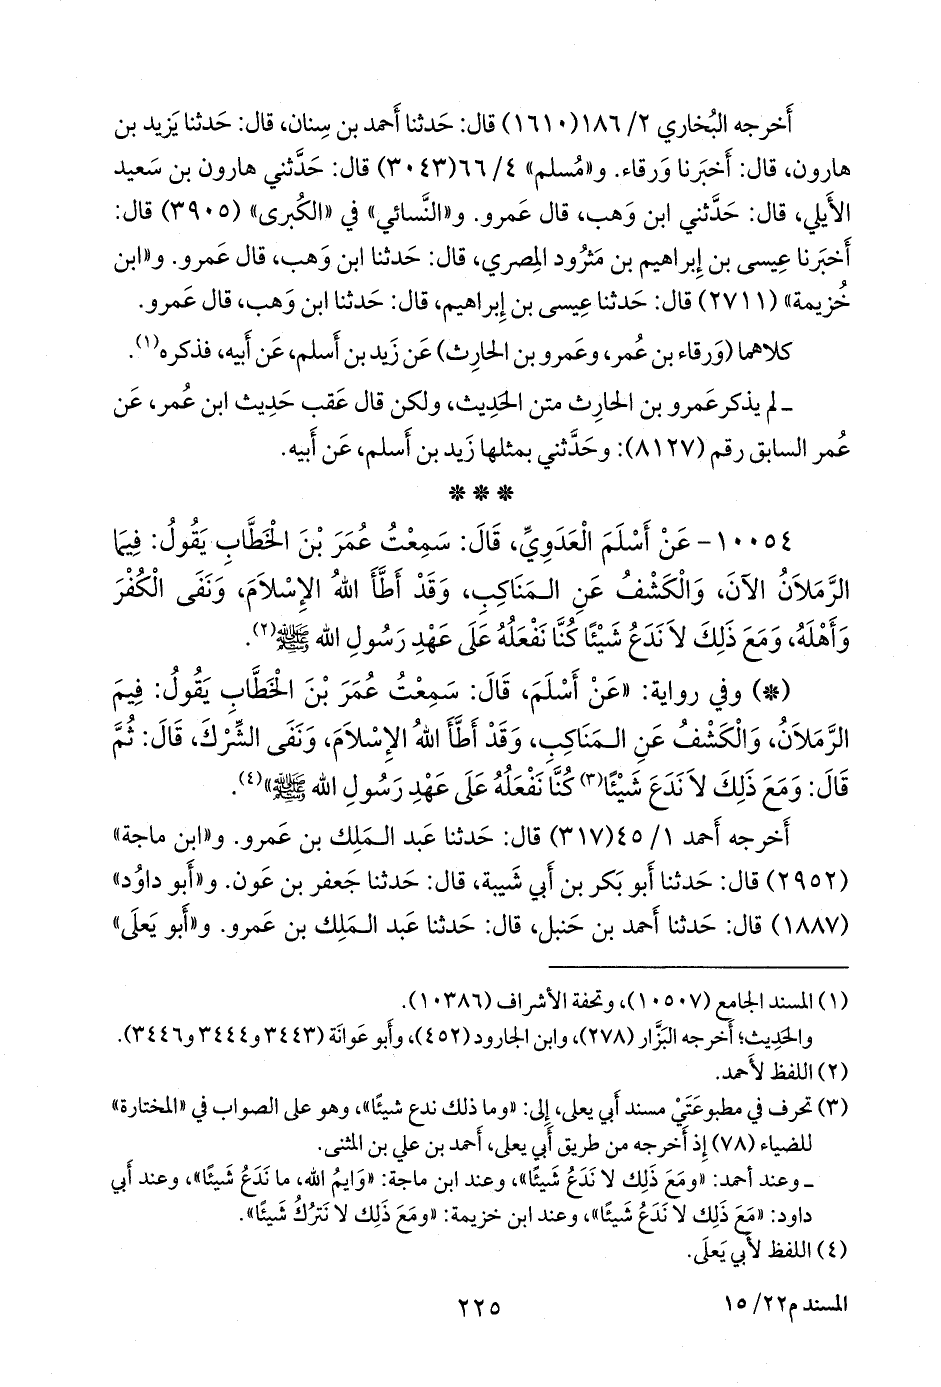 أَخرجه البُخاري ٢/ ١٨٦(١٦١٠) قال: حَدثنا أَحمد بن سِنان، قال: حَدثنا يَزيد بن
هارون، قال: أَخبَرنا وَرقاء. و«مُسلم» ٤/ ٦٦(٣٠٤٣) قال: حَدَّثني هارون بن سَعيد
الأَيلي، قال: حَدَّثني ابن وَهب، قال عَمرو. و«النَّسائي» في «الكُبرى» (٣٩٠٥) قال:
أَخبَرنا عِيسى بن إِبراهيم بن مَثرُود المِصري، قال: حَدثنا ابن وَهب، قال عَمرو. و«ابن
خُزيمة» (٢٧١١) قال: حَدثنا عِيسى بن إِبراهيم، قال: حَدثنا ابن وَهب، قال عَمرو.
كلاهما (وَرقاء بن عُمر، وعَمرو بن الحارِث) عَن زَيد بن أَسلم، عَن أَبيه، فذكره(١).
ـ لم يذكر عَمرو بن الحارِث متن الحَدِيث، ولكن قال عَقب حَدِيث ابن عُمر، عَن
عُمر السابق رقم (٨١٢٧): وحَدَّثني بمثلها زَيد بن أَسلم، عَن أَبيه.
* * *
١٠٠٥٤- عَنْ أَسْلَمَ الْعَدَوِيِّ، قَالَ: سَمِعْتُ عُمَرَ بْنَ الْخَطَّابِ يَقُولُ: فِيمَا
الرَّمَلاَنُ الآنَ، وَالْكَشْفُ عَنِ الـمَنَاكِبِ، وَقَدْ أَطَّأَ اللهُ الإِسْلاَمَ، وَنَفَى الْكُفْرَ
وَأَهْلَهُ، وَمَعَ ذَلِكَ لاَ نَدَعُ شَيْئًا كُنَّا نَفْعَلُهُ عَلَى عَهْدِ رَسُولِ الله ﷺ(٢).
(*) وفي رواية: «عَنْ أَسْلَمَ، قَالَ: سَمِعْتُ عُمَرَ بْنَ الْخَطَّابِ يَقُولُ: فِيمَ
الرَّمَلاَنُ، وَالْكَشْفُ عَنِ الـمَنَاكِبِ، وَقَدْ أَطَّأَ اللهُ الإِسْلاَمَ، وَنَفَى الشِّرْكَ، قَالَ: ثُمَّ
قَالَ: وَمَعَ ذَلِكَ لاَ نَدَعَ شَيْئًا(٣) كُنَّا نَفْعَلُهُ عَلَى عَهْدِ رَسُولِ الله ﷺ»(٤).
أَخرجه أَحمد ١/ ٤٥(٣١٧) قال: حَدثنا عَبد الـمَلِك بن عَمرو. و«ابن ماجة»
(٢٩٥٢) قال: حَدثنا أَبو بَكر بن أَبي شَيبة، قال: حَدثنا جَعفر بن عَون. و«أَبو داوُد»
(١٨٨٧) قال: حَدثنا أَحمد بن حَنبل، قال: حَدثنا عَبد الـمَلِك بن عَمرو. و«أَبو يَعلَى»
(١) المسند الجامع (١٠٥٠٧)، وتحفة الأشراف (١٠٣٨٦).
والحَدِيث؛ أَخرجه البَزَّار (٢٧٨)، وابن الجارود (٤٥٢)، وأَبو عَوانَة (٣٤٤٣ و٣٤٤٤ و٣٤٤٦).
(٢) اللفظ لأَحمد.
(٣) تحرف في مطبوعَتَيْ مسند أَبي يعلى، إِلى: «وما ذلك ندع شيئًا»، وهو على الصواب في «المختارة»
للضياء (٧٨) إِذ أَخرجه من طريق أَبي يعلى، أَحمد بن علي بن المثنى.
ـ وعند أحمد: «ومَعَ ذَلِكَ لا نَدَعُ شَيئًا»، وعند ابن ماجة: «وَايمُ الله، ما نَدَعُ شَيئًا»، وعند أَبي
داود: «مَعَ ذَلِكَ لا نَدَعُ شَيئًا»، وعند ابن خزيمة: «ومَعَ ذَلِكَ لا نَترُكُ شَيئًا».
(٤) اللفظ لأَبي يَعلَى.
المسند م٢٢/ ١٥
٢٢٥